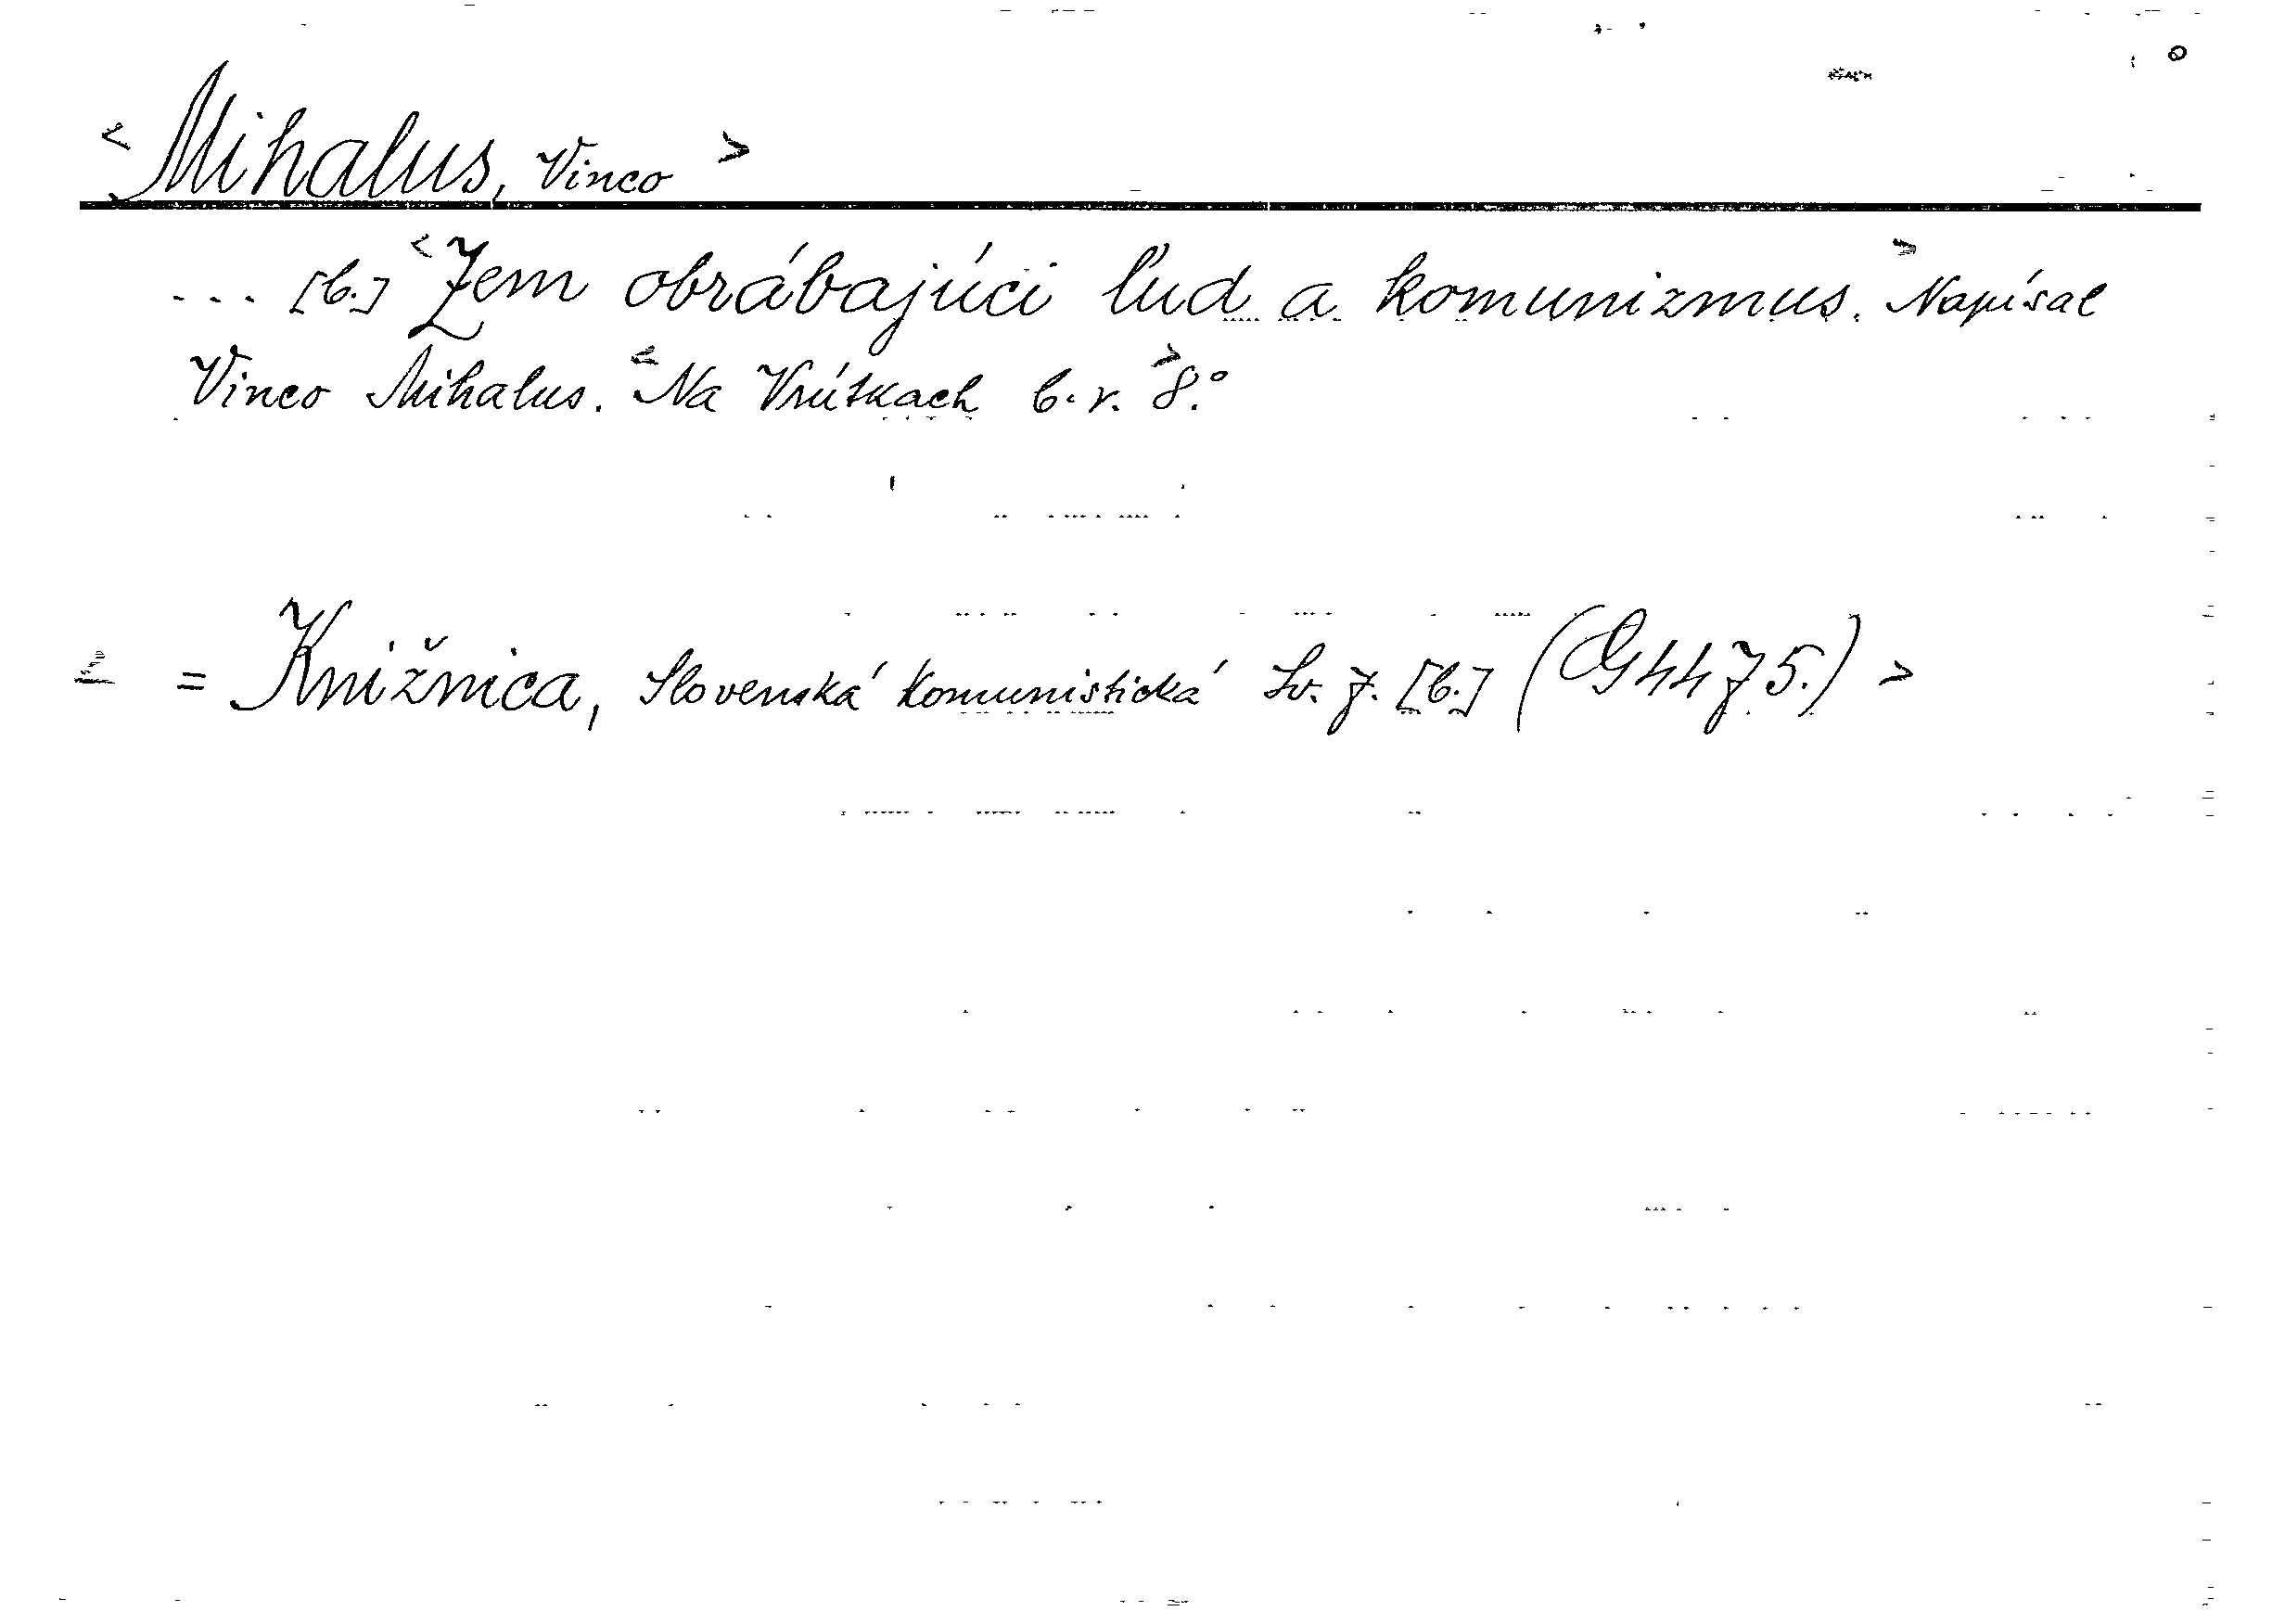 < Mihalus, Vinco >
... [b.] < Zem obrábajúci ľud a komunizmus. > Napísal
Vinco Mihalus. < Na Vrútkach b. r. > 8.°
= Knižnica, Slovenská komunistická Sv. 7. [b.] (G 4475.) >